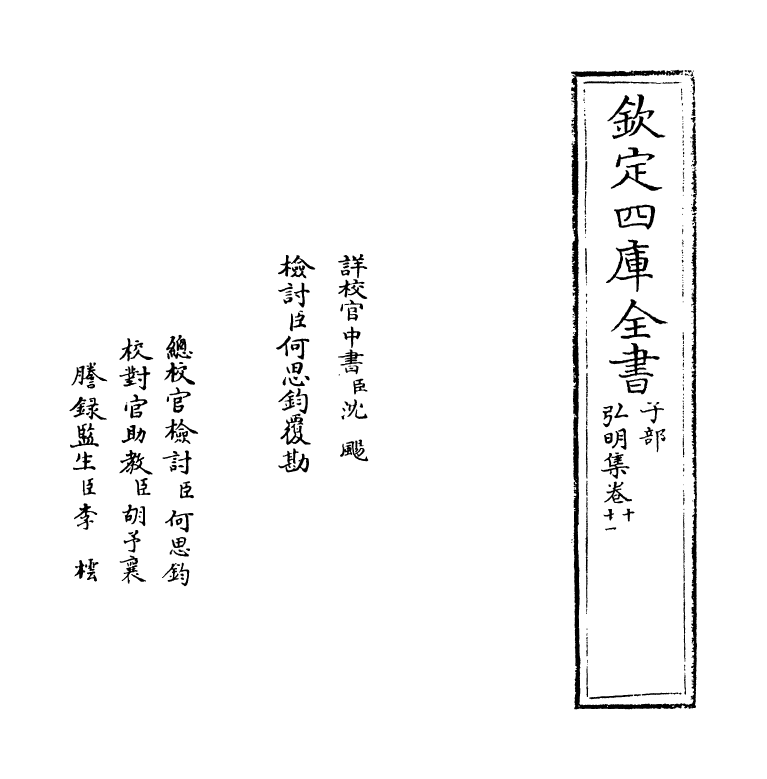 欽定四庫全書
子部
弘明集卷十
十一
詳校官中書臣沈颺
檢討臣何思鈞覆勘
總校官檢討臣何思鈞
校對官助教臣胡予襄
謄錄監生臣李橒